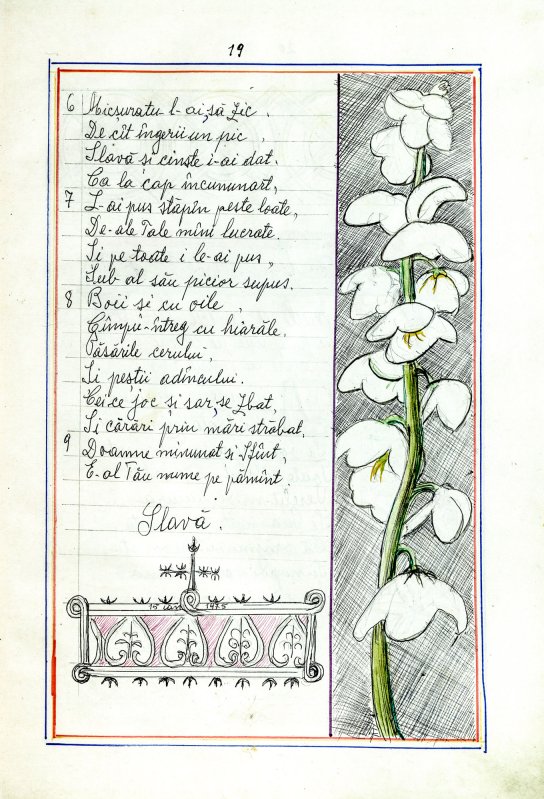 19
6 Micșuratu-l-ai, să zic.
De cît îngerii un pic,
Slavă si cinste i-ai dat.
Ca la cap încununart,
7 L-ai pus stăpîn peste toate,
De-ale Tale mîni lucrate.
Si pe toate i le-ai pus,
Sub al său picior supus.
8 Boii si cu oile,
Cîmpu-ntreg cu hiarăle.
Păsările cerului,
Si peștii adîncului.
Cei ce joc și sar, se zbat,
Si cărări prin mări străbat.
9 Doamne minunat si Sfînt,
E-al Tău nume pe pămînt.
Slavă.
15 ian 1975